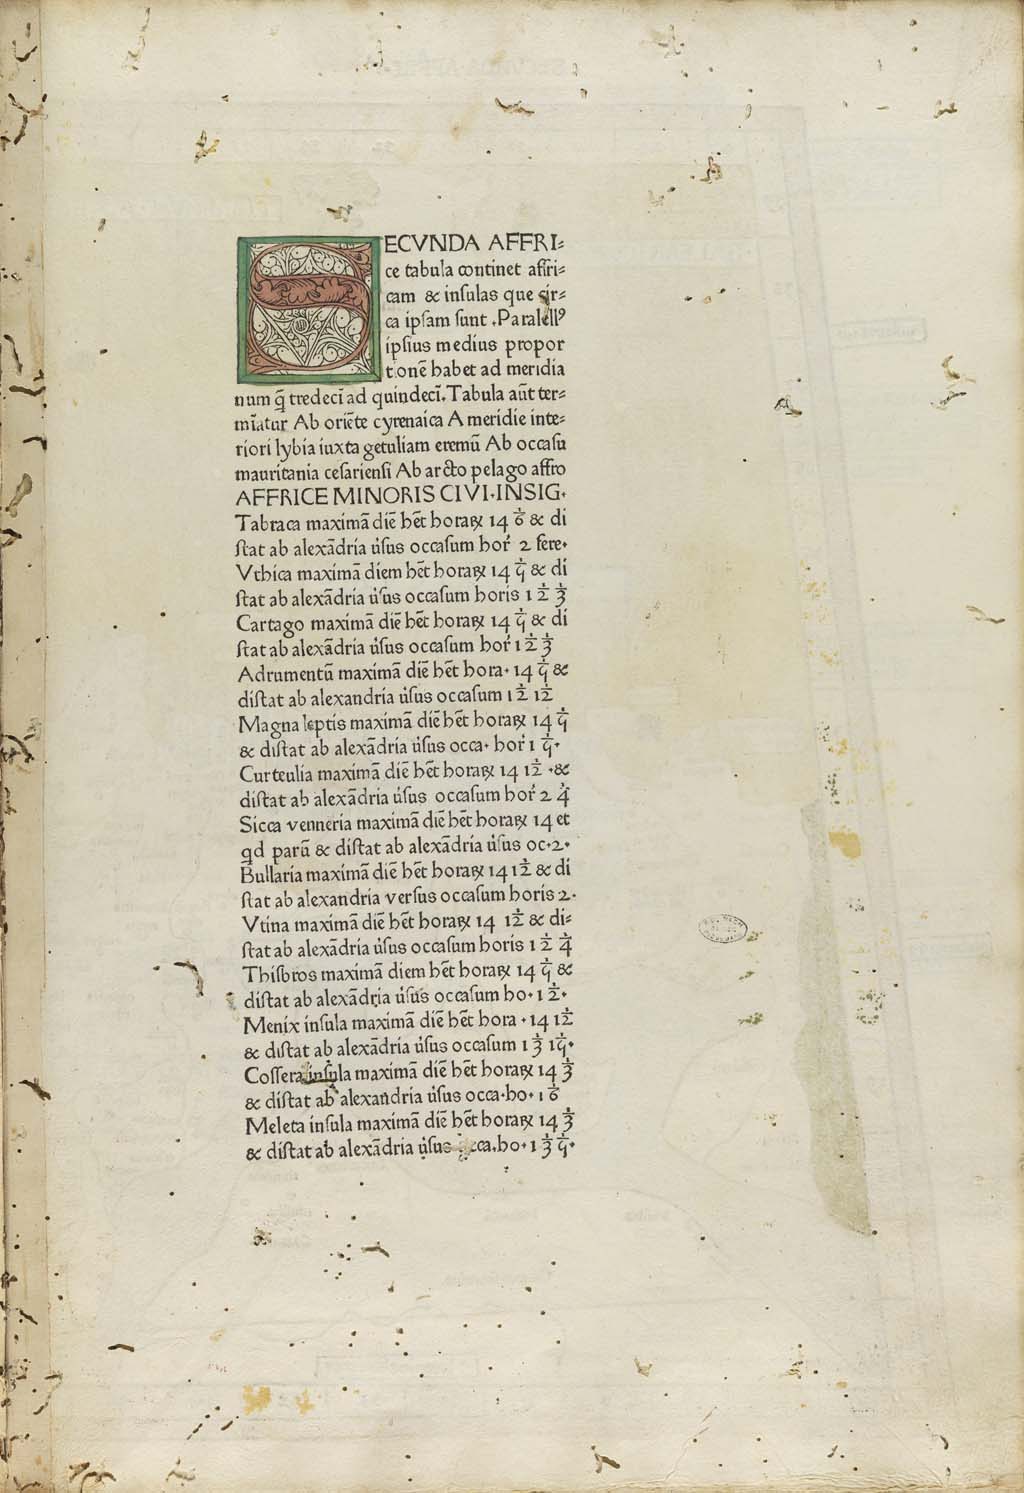 SECVNDA AFFRI⸗
ce tabula continet affri⸗
cam & inſulas que cir⸗
ca ipſam ſunt .Paralellꝰ
ipſius medius propor
tionē habet ad meridia
num q̄ tredecī ad quindecī. Tabula aūt ter⸗
mīatur Ab oriēte cyrenaica A meridie inte⸗
riori lybia iuxta getuliam eremū Ab occaſu
mauritania ceſarienſi Ab arcto pelago affro
AFFRICE MINORIS CIVI.INSIG.
Tabraca maximā diē hēt horaꝝ 14 1/6 & di
ſtat ab alexādria ūſus occaſum hor̄ 2 fere.
Vthica maximā diem hēt horaꝝ 14 1/ꝗ & di
ſtat ab alexādria ūſus occaſum horis 1 1/2 1/3
Cartago maximā diē hēt horaꝝ 14 1/ꝗ & di
ſtat ab alexādria ūſus occaſum hor̄ 1 1/2 1/3
Adrumentū maximā diē hēt hora. 14 1/ꝗ &
diſtat ab alexandria ūſus occaſum 1 1/2 1/12
Magna leptis maximā diē hēt horaꝝ 14 1/ꝗ
& diſtat ab alexādria ūſus occa. hor̄ 1 1/ꝗ.
Curteulia maximā diē hēt horaꝝ 14 1/12 .&
diſtat ab alexādria ūſus occaſum hor̄ 2 1/4
Sicca venneria maximā diē hēt horaꝝ 14 et
qd parū & diſtat ab alexādria ūſus oc.2.
Bullaria maximā diē hēt horaꝝ 14 1/12 & di
ſtat ab alexandria verſus occaſum horis 2.
Vtina maximā diē hēt horaꝝ 14 1/12 & di⸗
ſtat ab alexādria ūſus occaſum horis 1 1/2 1/4
Thiſbros maximā diem hēt horaꝝ 14 1/ꝗ &
diſtat ab alexādria ūſus occaſum ho. 1 1/2.
Menix inſula maximā diē hēt hora . 14 1/12
& diſtat ab alexādria ūſus occaſum 1 1/3 1/1ꝗ.
Coſſera inſula maximā diē hēt horaꝝ 14 1/3
& diſtat ab alexandria ūſus occa.ho. 1 1/6
Meleta inſula maximā diē hēt horaꝝ 14 1/3
& diſtat ab alexādria ūſus occa.ho. 1 1/3 1/ꝗ.